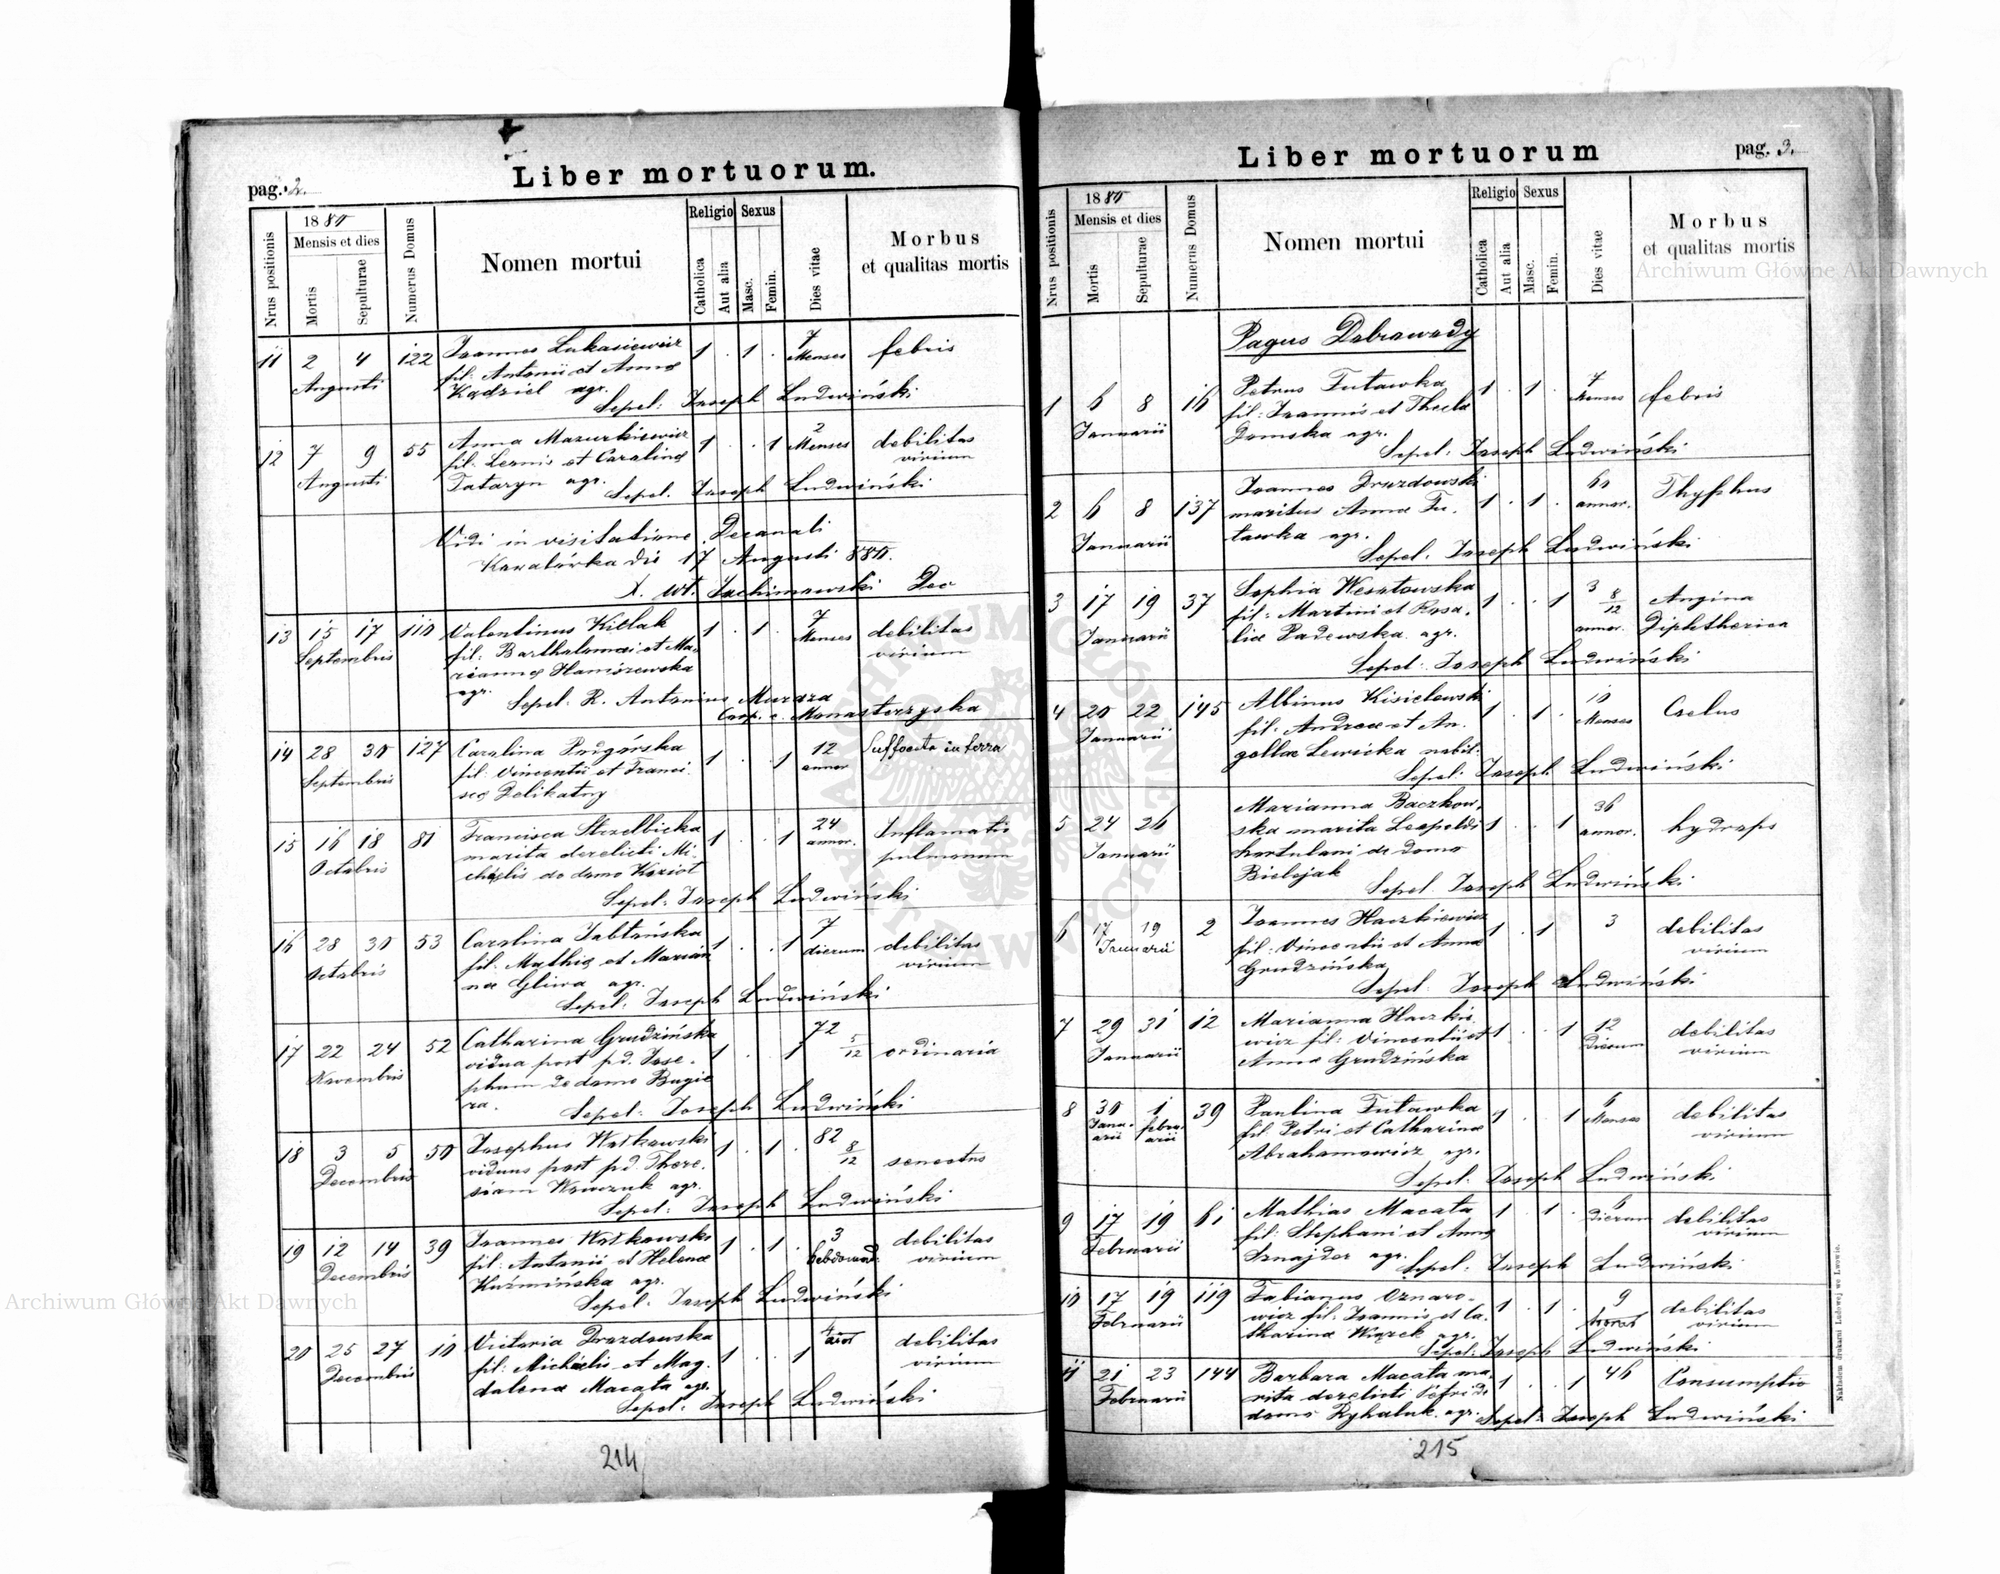 pag. 2.
Liber mortuorum.
Nrus positionis
1880
Mensis et dies
Mortis
Sepulturae
Numerus Domus
Nomen mortui
Religio
Catholica
Aut alia
Sexus
Masc.
Femin.
Dies vitae
Morbus
et qualitas mortis
11 2 4 122 Joannes Lukasiewicz 1 . 1 . 7 febris
Augusti fil: Antonii et Annae Menses
Kądziel agr.
Sepel: Joseph Ludwiński
12 7 9 55 Anna Mazurkiewicz 1 . . 1 2 Menses debilitas
Augusti fil: et Carolinae virium
Tataryn agr.
Sepel. Joseph Ludwinski
Vidi in visitatione Decanali
Korolówka die 17 Augusti 880.
X. Jachimowski Dec
13 15 17 110 Valentinus Kielak 1 . 1 . 7 Menses debilitas
Septembris fil: Bartholomaei et Ma- virium
riannae Hamórzewska
agr.
Sepel: R. Antonius Murdza
Coop. e. Monasterzyska
14 28 30 127 Carolina Podgórska 1 . . 1 12 annor Suffocata in terra
Septembris fil: Vincentii et Franci-
scae Delikatny
15 16 18 81 Francisca Strzelbicka 1 . . 1 24 annor. Inflamatio
Octobris marita derelicti Mi- pulmonum
chaelis de domo Koziot
Sepel: Joseph Ludwiński
16 28 30 53 Carolina Jabłońska 1 . . 1 7 dierum debilitas
Octobris fil: Mathiae et Marian virium
nae Gliwa agr.
Sepel: Joseph Ludwiński
17 22 24 52 Catharina Grudzińska 1 . . 1 72 5/12 ordinaria
Novembris vidua post pd. Jose-
phum de domo Bugie
ra.
Sepel: Joseph Ludwiński
18 3 5 50 Josephus Wątkowski 1 . 1 . 82 8/12 senectus
Decembris viduus post pd. There-
siam Wawczuk agr.
Sepel: Joseph Ludwiński
19 12 14 39 Joannes Wątkowski 1 . 1 . 3 hebdomad. debilitas
Decembris fil: Antonii et Helenae virium
Kuźmińska agr.
Sepel: Joseph Ludwiński
20 25 27 10 Victoria Drozdowska 1 . . 1 4 debilitas
Decembris fil: Michaelis et Mag- virium
dalenae Macata agr.
Sepel: Joseph Ludwiński
214
Liber mortuorum
pag. 3.
Nrus positionis
1880
Mensis et dies
Mortis
Sepulturae
Numerus Domus
Nomen mortui
Religio
Catholica
Aut alia
Sexus
Masc.
Femin.
Dies vitae
Morbus
et qualitas mortis
Pagus Dobrawody
1 6 8 16 Petrus Futawka 1 . 1 . 7 Menses febris
Januarii fil: Joannis et Thecla
Domska agr.
Sepel: Joseph Ludwiński
2 6 8 137 Joannes Drozdowski 1 . 1 . 60 annor. Thyphus
Januarii maritus Annae Fu-
tawka agr.
Sepel: Joseph Ludwiński
3 17 19 37 Sophia Wesołowska 1 . . 1 3 8/12 annor. Angina
Januarii fil: Martini et Rosa- Diphtherica
liae Padewska agr.
Sepel: Joseph Ludwiński
4 20 22 145 Albinus Kisielewski 1 . 1 . 10 Menses
Januarii fil: Andreae et An-
gellae Lewicka nobil:
Sepel: Joseph Ludwiński
5 24 26 Marianna Baczkow- 1 . . 1 36 annor. hydrops
Januarii ska marita Leopoldi
hortulani de domo
Bielejak
Sepel. Joseph Ludwiński
6 17 19 2 Joannes Haczkiewicz 1 . 1 . 3 debilitas
Januarii fil: Vincentii et Annae virium
Grudzińska
Sepel. Joseph Ludwiński
7 29 31 12 Marianna Haczkie- 1 . . 1 12 Dierum debilitas
Januarii wicz fil: Vincentii et virium
Annae Grudzińska
8 30 1 39 Paulina Futawka 1 . . 1 6 Menses debilitas
Janu-arii febru-arii fil. Petri et Catharinae virium
Abrahamowicz agr.
Sepel: Joseph Ludwiński
9 17 19 61 Mathias Macata 1 . 1 . 6 dierum debilitas
Februarii fil: Stephani et Annae virium
Sznajder agr.
Sepel: Joseph Ludwiński
10 17 19 119 Fabianus Oznaro- 1 . 1 . 9 debilitas
Februarii wicz fil: Joannis et Ca- virium
tharinae Wiązek agr.
Sepel: Joseph Ludwiński
11 21 23 144 Barbara Macata ma- 1 . . 1 46 Consumptio
Februarii rita derelicti Petri de
domo Ryhaluk agr.
Sepel: Joseph Ludwiński
215
Nakładem drukarni Ludowej we Lwowie.
Archiwum Główne Akt Dawnych
Archiwum Główne Akt Dawnych
ARCHIWUM GŁÓWNE AKT DAWNYCH